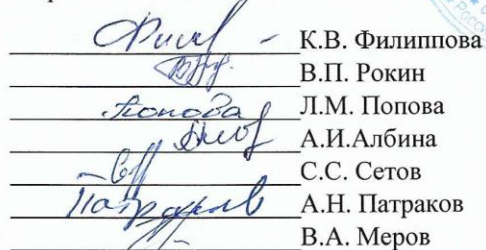 К.В. Филиппова
В.П. Рокин
Попова Л.М. Попова
А.И.Албина
С.С. Сетов
Патраков А.Н. Патраков
В.А. Меров